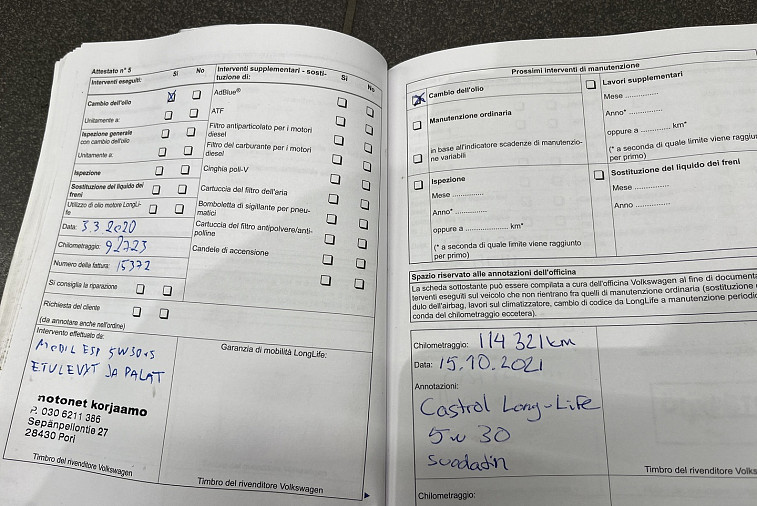 Attestato n° 5
Interventi eseguiti:
Sì
No
Cambio dell'olio
Unitamente a:
Ispezione generale
con cambio dell'olio
Unitamente a:
Ispezione
Sostituzione del liquido dei
freni
Utilizzo di olio motore LongLi-
fe
Data: 3 3 2020
Chilometraggio: 92723
Numero della fattura: 15372
Si consiglia la riparazione
Richiesta del cliente
(da annotare anche nell'ordine)
Intervento effettuato da:
ETULEVYT JA PALAT
motonet korjaamo
P. 030 6211 386
Sepänpellontie 27
28430 Pori
Timbro del rivenditore Volkswagen
Interventi supplementari - sosti-
tuzione di:
Sì
No
AdBlue®
ATF
Filtro antiparticolato per i motori
diesel
Filtro del carburante per i motori
diesel
Cinghia poli-V
Cartuccia del filtro dell'aria
Bomboletta di sigillante per pneu-
matici
Cartuccia del filtro antipolvere/anti-
polline
Candele di accensione
Garanzia di mobilità LongLife:
Timbro del rivenditore Volkswagen
Prossimi interventi di manutenzione
Cambio dell'olio
Manutenzione ordinaria
in base all'indicatore scadenze di manutenzio-
ne variabili
Ispezione
Mese ..............
Anno* ..............
oppure a .............. km*
(* a seconda di quale limite viene raggiunto
per primo)
Lavori supplementari
Mese ..............
Anno* ..............
oppure a .............. km*
(* a seconda di quale limite viene raggiun
per primo)
Sostituzione del liquido dei freni
Mese ..............
Anno ..............
Spazio riservato alle annotazioni dell'officina
La scheda sottostante può essere compilata a cura dell'officina Volkswagen al fine di documenta
terventi eseguiti sul veicolo che non rientrano fra quelli di manutenzione ordinaria (sostituzione
dulo dell'airbag, lavori sul climatizzatore, cambio di codice da LongLife a manutenzione periodic
conda del chilometraggio eccetera).
Chilometraggio: 114 321km
Data: 15.10.2021
Annotazioni:
Castrol Long-Life
5w 30
suodatin
Timbro del rivenditore Volks
Chilometraggio: